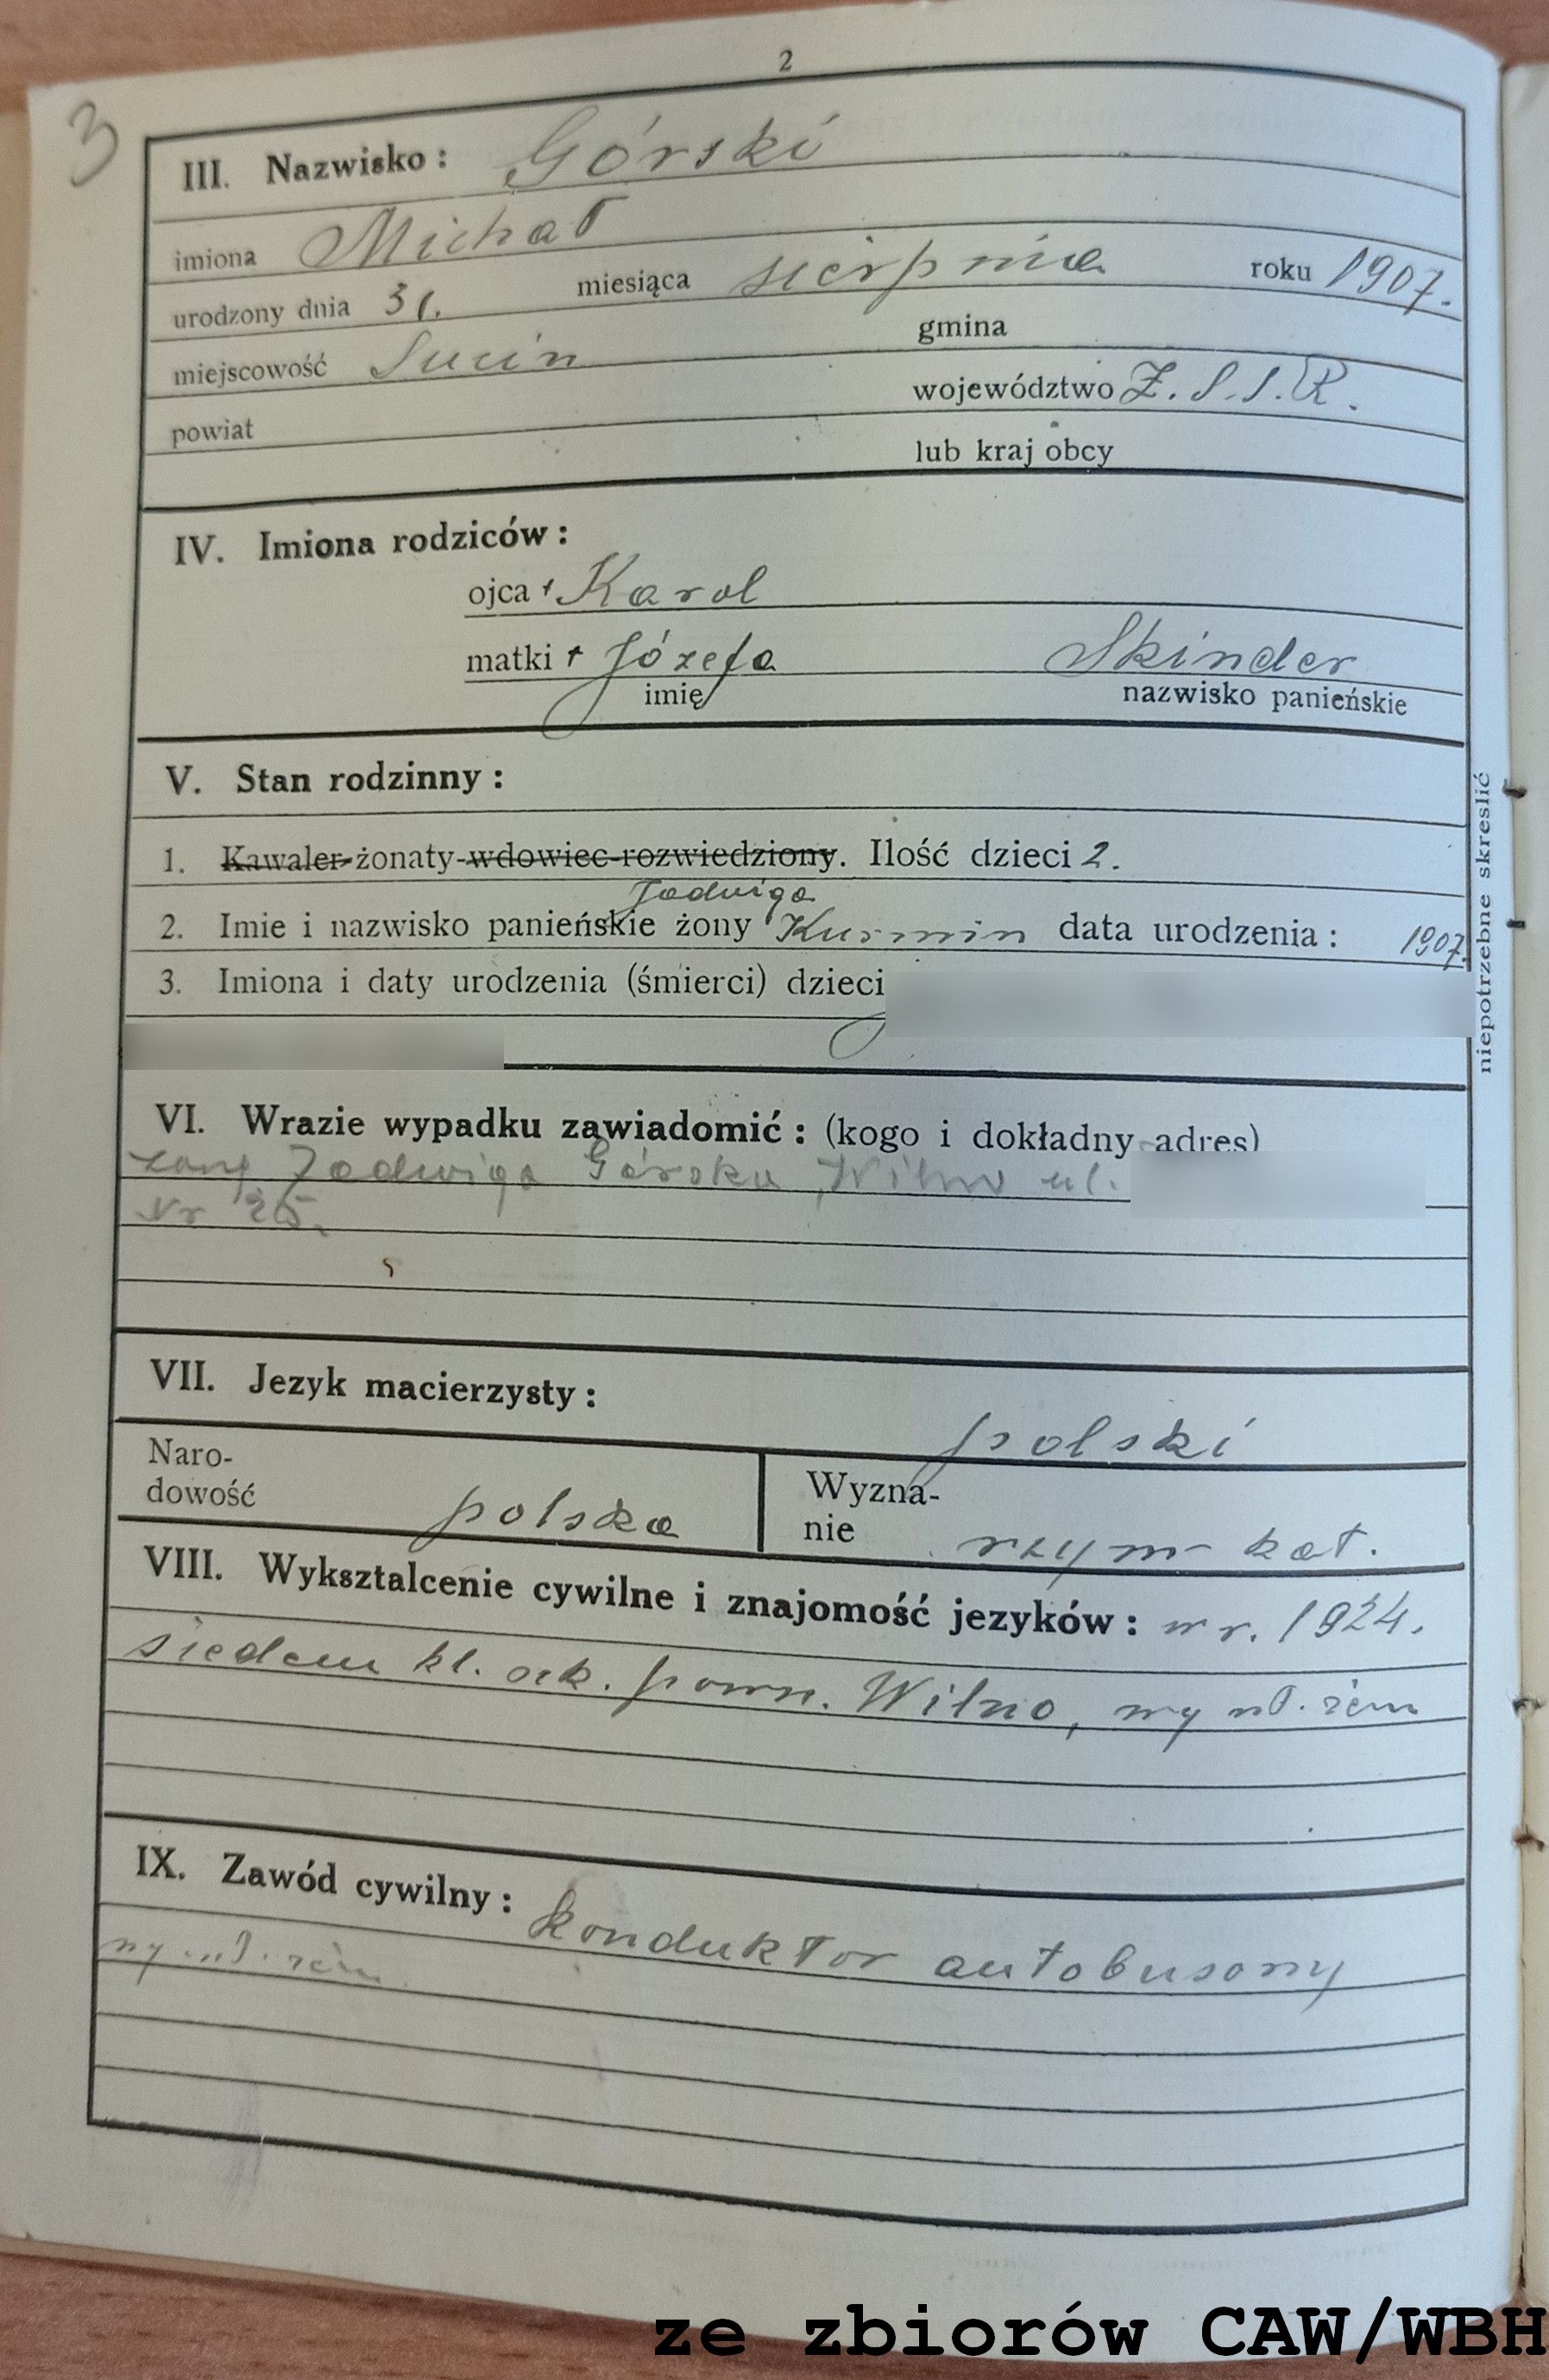 2
3
III. Nazwisko: Górski
imiona Michał
urodzony dnia 31. miesiąca sierpnia roku 1907.
miejscowość Sucin gmina
powiat województwo Z.S.S.R.
lub kraj obcy
IV. Imiona rodziców:
ojca + Karol
matki + Józefa Skinder
imię nazwisko panieńskie
V. Stan rodzinny:
1. Kawaler-żonaty-wdowiec-rozwiedziony. Ilość dzieci 2.
Jadwiga
2. Imie i nazwisko panieńskie żony Kurmin data urodzenia: 1907.
3. Imiona i daty urodzenia (śmierci) dzieci
niepotrzebne skreslić
VI. Wrazie wypadku zawiadomić: (kogo i dokładny adres)
żonę Jadwiga Górska, Wilno ul.
Nr 25.
VII. Jezyk macierzysty:
polski
Naro-
dowość polska
Wyzna-
nie rzym kat.
VIII. Wyksztalcenie cywilne i znajomość jezyków: w r. 1924.
siedem kl. szk. pown. Wilno,
IX. Zawód cywilny: konduktor autobusowy
ze zbiorów CAW/WBH